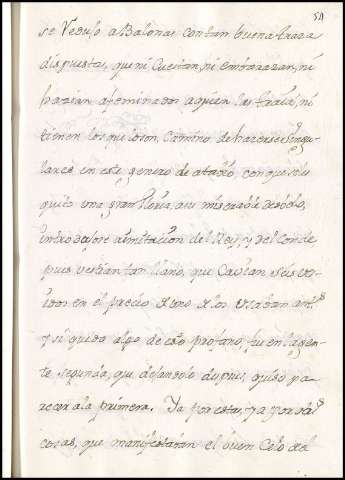 54
se Redujo a Balonas con tan buena traza
dispuesta, que ni Cuestan, ni embarazan, ni
hazian afeminados a quien las traia, ni
tienen los que lo son, Camino de hazerse singu
lares en este genero de atabio con que se les
quito una gran gloria, a su miserable
introduzese a imitacion del Rey, y del Conde
pues vestian tan llano, que Cavian seis
en el precio de uno de los Usaban antˢ
y si quedo algo de esto profano, fue en la gen-
te segunda, que dejandolo despues, quiso pa
recer a la primera. Ya por estas, ya por
cosas, que manifestaran el buen Celo del